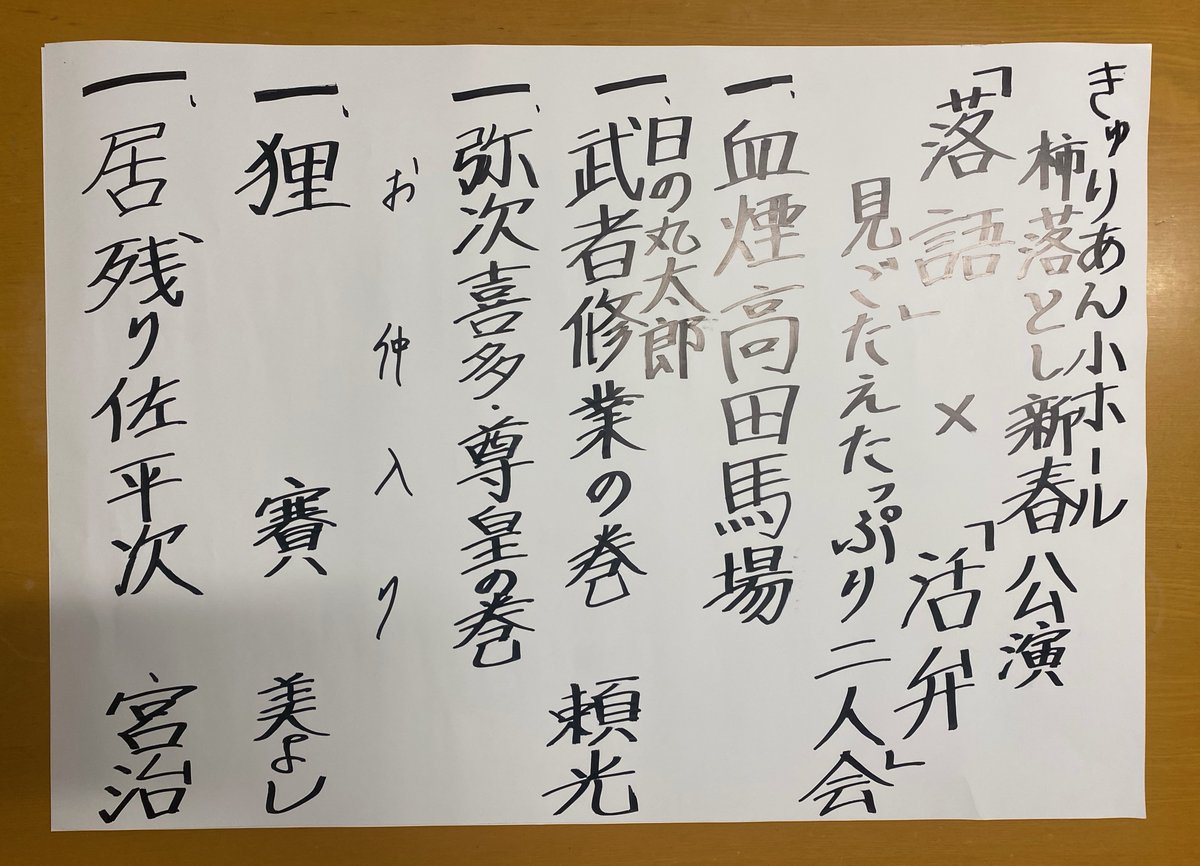 きゅりあん小ホール
柿落とし新春公演
「落語」×「活弁」
見ごたえたっぷり二人会
一、血煙高田馬場
一、日の丸太郎
武者修業の巻 頼光
一、弥次喜多・尊皇の巻
お仲入り
一、狸賽 美よし
一、居残り佐平次 宮治